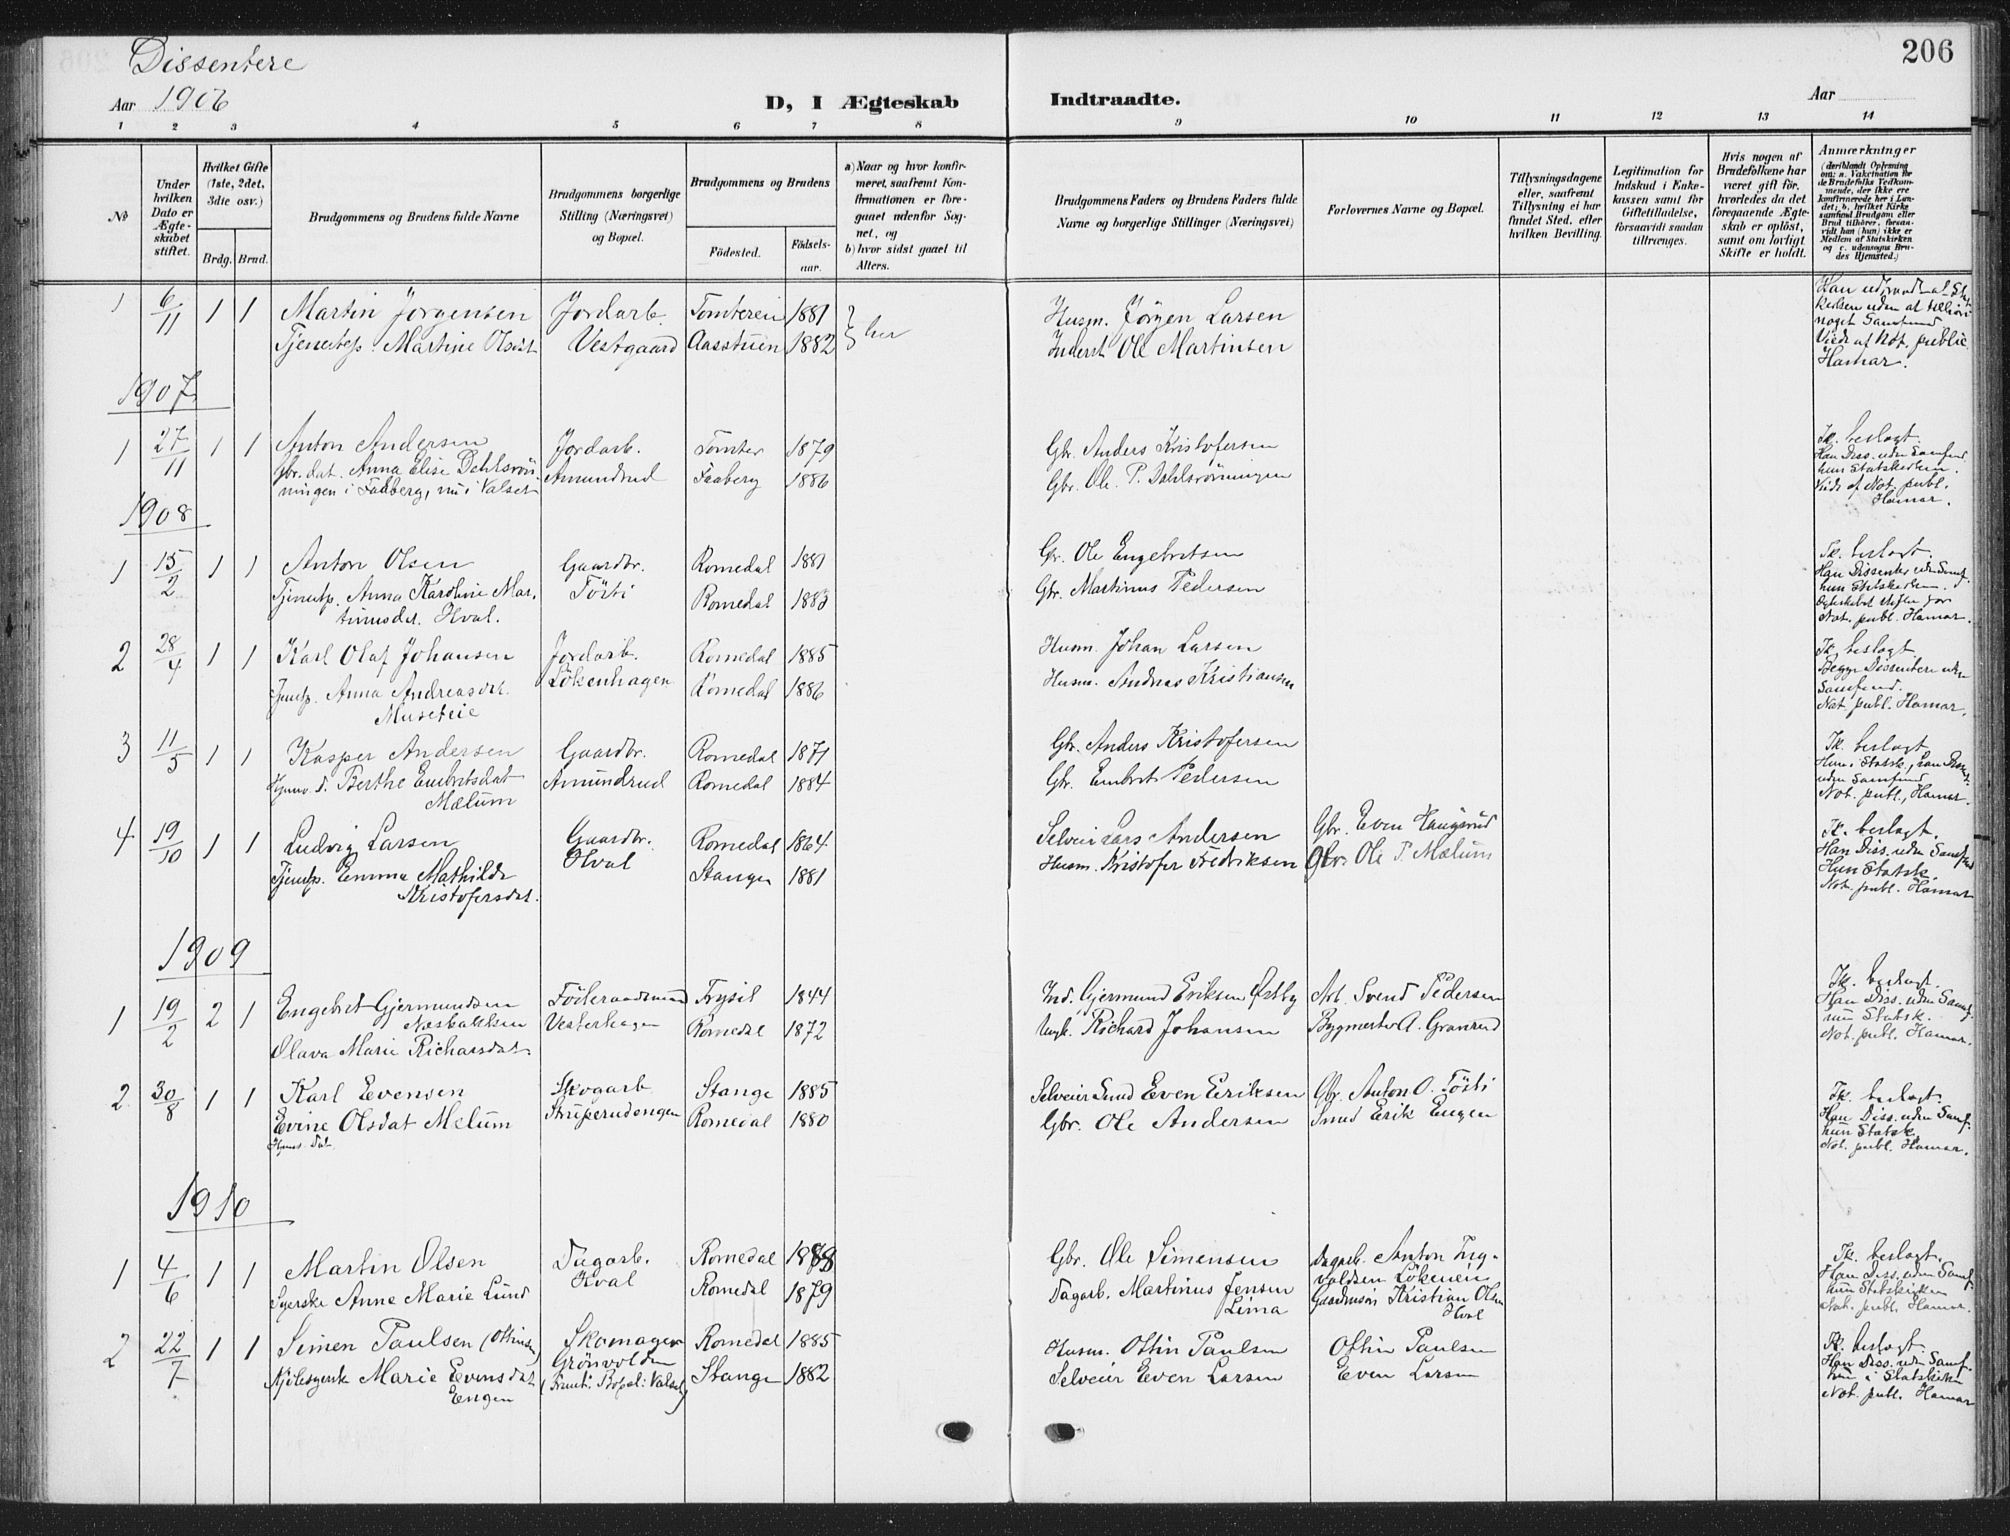 206
Dissentere
Aar 1906
D, I Ægteskab
Indtraadte.
Aar
1 2 3 4 5 6 7 8 9 10 11 12 13 14
No
Under hvilken Dato er Ægteskabet stiftet.
Hvilket Gifte (1ste, 2det, 3die osv.)
Brdg. Brud.
Brudgommens og Brudens fulde Navne
Brudgommens borgerlige Stilling (Næringsvei) og Bopæl.
Brudgommens og Brudens
Födested.
Födselsaar.
a) Naar og hvor konfirmeret, saafremt Konfirmationen er foregaaet udenfor Sognet, og
b) hvor sidst gaaet til Alters.
Brudgommens Faders og Brudens Faders fulde Navne og borgerlige Stillinger (Næringsvei)
Forlovernes Navne og Bopæl.
Tillysningsdagene eller, saafremt Tillysning ei har fundet Sted, efter hvilken Bevilling.
Legitimation for Indskud i Enkekassen samt for Giftetilladelse, forsaavidt saadan tiltrænges.
Hvis nogen af Brudefolkene har været gift för, hvorledes da det foregaaende Ægteskab er oplöst, samt om lovligt Skifte er holdt.
Anmærkninger
(deriblandt Oplysning om: a. Vakcination for de Brudefolks Vedkommende, der ikke ere konfirmerede her i Landet; b. hvilket Kirkesamfund Brudgom eller Brud tilhörer, forsaavidt han (hun) ikke er Medlem af Statskirken og c. udensogns Brudes Hjemsted.)
1 6/11 1 1 Martin Jörgensen Jordarb. Tomterein 1881 } her Husm. Jörgen Larsen
Tjenestep. Martine Olsdt Vestgaard Aasstuen 1882 Inderst Ole Martinsen
Han udtraadt af Statskirken uden at tilhöre
noget Samfund
Viede af Not. public.
Hamar.
1907
1 27/11 1 1 Anton Andersen Jordarb. Tomter 1879 Gbr. Anders Kristofersen
Gbr. dat. Anna Elise Dehlsrön- Amundrud Faaberg 1886 Gbr. Ole. P. Dahlsrönningen
ningen i Faaberg, nu i Valset
Tk. beslagt.
Han Diss. uden Samfund,
hun Statskirken.
Viede af Not. publ.
Hamar.
1908
1 15/2 1 1 Anton Olsen Gaardbr. Romedal 1881 Gbr. Ole Engebretsen
Tjenestp. Anna Karoline Mar- Tösti Romedal 1883 Gbr. Martinus Pedersen
tinusdet. Hval.
Tk. beslagt.
Han Dissenter uden Samf.
hun Statskirken.
Ægteskabet stiftet for
Not. publ. Hamar.
2 28/4 1 1 Karl Olaf Johansen Jordarb. Romedal 1885 Husm. Johan Larsen
Tjenestp. Anna Andreasdt. Lökenhagen Romedal 1886 Husm. Andreas Kristiansen
Museteie
Tk. beslagt
Begge Dissentere uden
Samfund.
Not. publ. Hamar.
3 11/5 1 1 Kasper Andersen Gaardbr. Romedal 1871 Gbr. Anders Kristofersen
Hjemv. d. Berthe Embretsdat Amundrud Romedal 1884 Gbr. Embret Pedersen
Mælum
Tk. beslagt
Hun i Statsk., han Diss.
uden Samfund
Not. publ., Hamar.
4 19/10 1 1 Ludvig Larsen Gaardbr. Romedal 1864 Selveier Lars Andersen Gbr. Even Haugsrud
Tjenestp. Emma Mathilde Hval Stange 1881 Husm. Kristofer Fredriksen Gbr. Ole P. Mælum
Kristofersdat.
Tk. beslagt.
Han Diss. uden Samfund
Hun Statsk.
Not. publ. Hamar
1909
1 19/2 2 1 Engebret Gjermundsen Föderaadsmand Trysil 1844 Ind. Gjermund Eriksen Østby Arb. Svend Pedersen
Næsbakken Vesterhagen Romedal 1872 Richard Johansen Bygmester A. Granrud
Olava Marie Richarsdat
Tk. beslagt.
Han Diss. uden Samf.
hun Statsk.
Not. publ. Hamar.
2 30/8 1 1 Karl Evensen Skogarb Stange 1885 Selveier Smed Even Eriksen Gbr. Anton O. Tösti
Evine Olsdat Mælum Struperudengen Romedal 1880 Gbr. Ole Andersen Smed Erik Engen
Hjemv. Dat
Tk. beslagt.
Han Diss. uden Samf.
hun Statsk
Not. publ. Hamar.
1910
1 4/6 1 1 Martin Olsen Dagarb. Romedal 1888 Gbr. Ole Simensen Dagarb. Anton Ing-
Syerske Anne Marie Lund Hval Romedal 1879 Dagarb. Martinus Jensen valdsen Lökenen
Lima Gaardmsön Kristian Olsen
Hval
Tk. beslagt.
Han Diss. uden Samf
hun Statskirken
Not. publ. Hamar.
2 22/7 1 1 Simen Paulsen (Ottinsen) Skomager Romedal 1885 Husm. Ottin Paulsen Ottin Paulsen
Kjolesyersk Marie Evensdat Grönvolden Stange 1882 Selveier Even Larsen Even Larsen
Engen (Fremt. Bopæl: Valset)
Tk. beslagt
Han Diss. uden Samf.
hun i Statskirken
Not. publ. Hamar